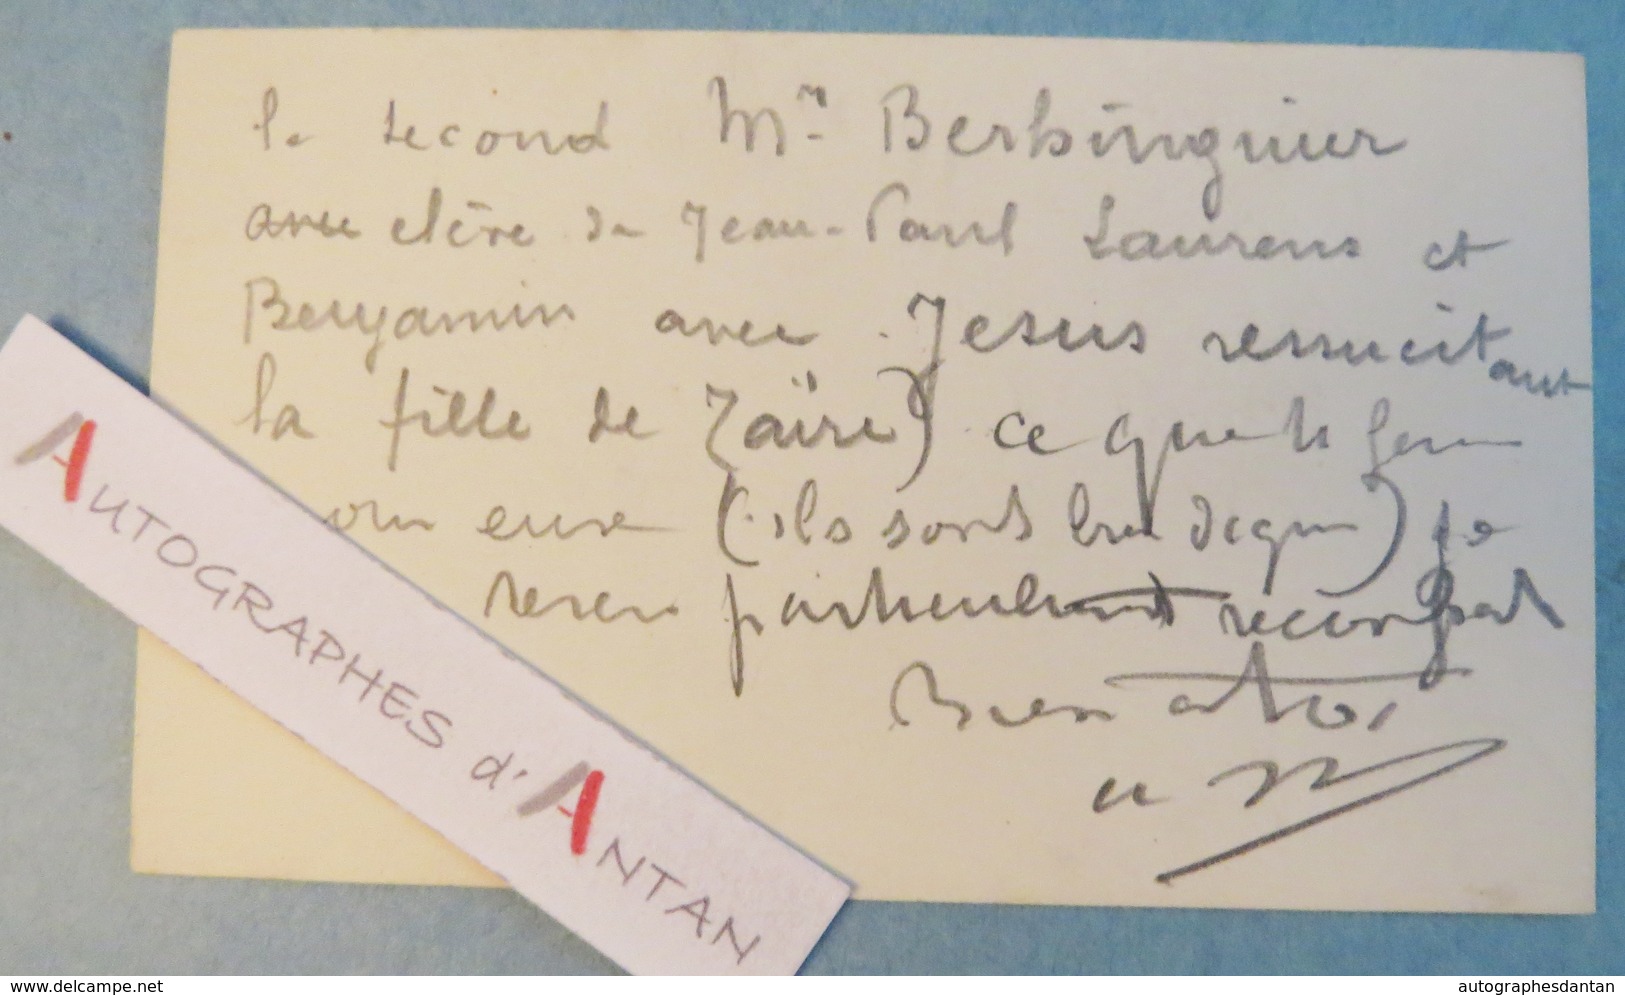 le second Mr Berbinguier
avec elève de Jean-Paul Laurens et
Benjamin avec Jesus ressucitant
la fille de Zaïre) ce que tu feras
pour eux (ils sont bien dignes) je
serai particulièrement reconnaissant
Bien à toi
AUTOGRAPHES d'ANTAN
www.delcampe.net
autographesdantan